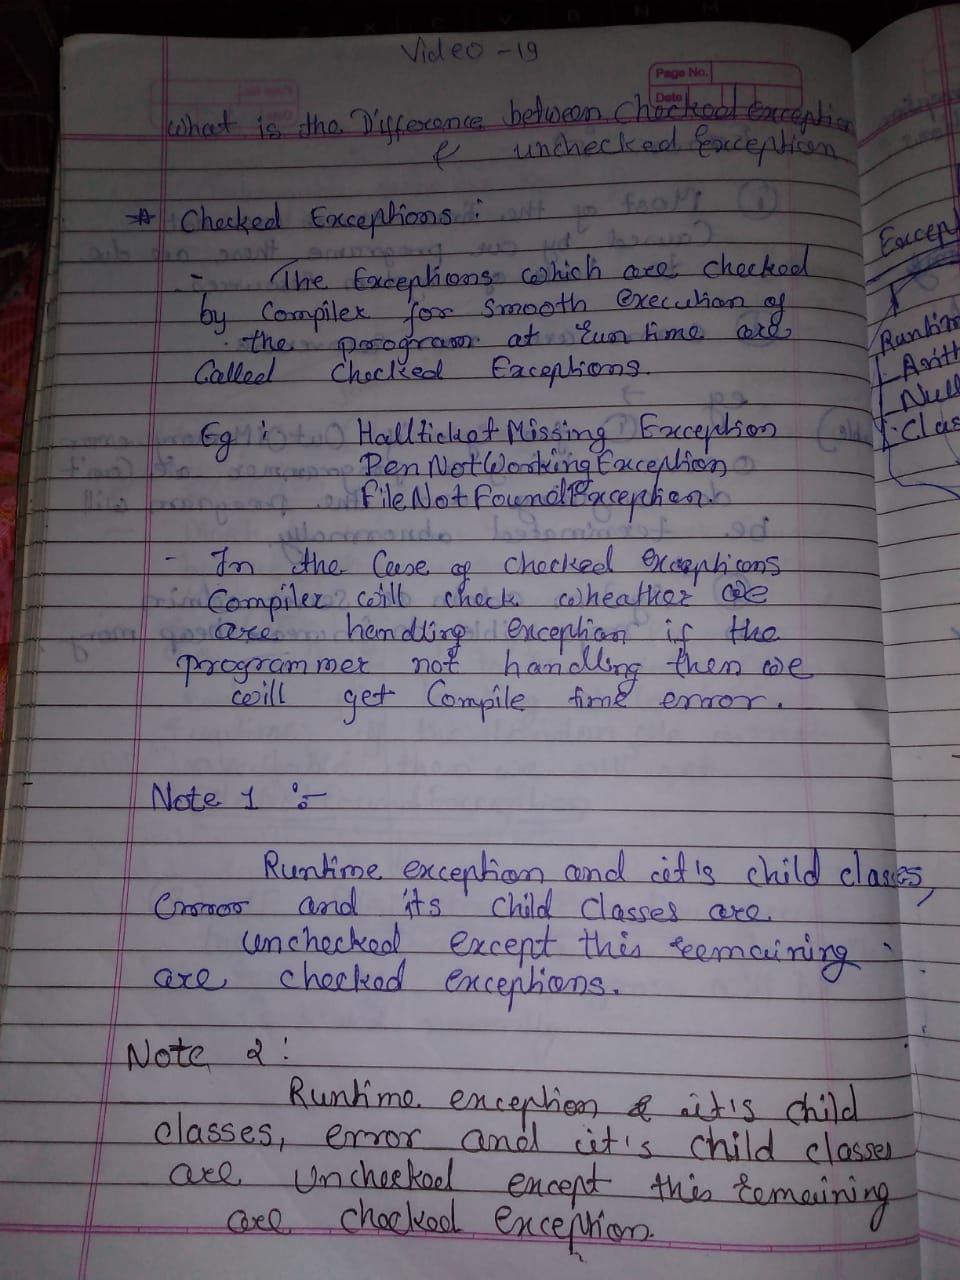 Video - 19
Page No.
Date
What is the Difference between Checked Exceptio
& unchecked Exception
* Checked Exceptions :
- The Exceptions which are checked
by Compiler for smooth execution of
the program at run time are
Called Checked Exceptions.
Eg : HallticketMissing Exception
PenNotWorkingException
FileNotFoundException.
- In the Case of checked exceptions
Compiler will check wheather we
are handling exception if the
programmer not handling then we
will get Compile time error.
Note 1 :-
Runtime exception and it's child classes,
Error and its child classes are
unchecked except this remaining
are checked exceptions.
Note 2 :
Runtime exception & it's child
classes, error and it's child classes
are uncheked except this remaining
are checked exception.
Except
Runtim
Arith
Null
Clas